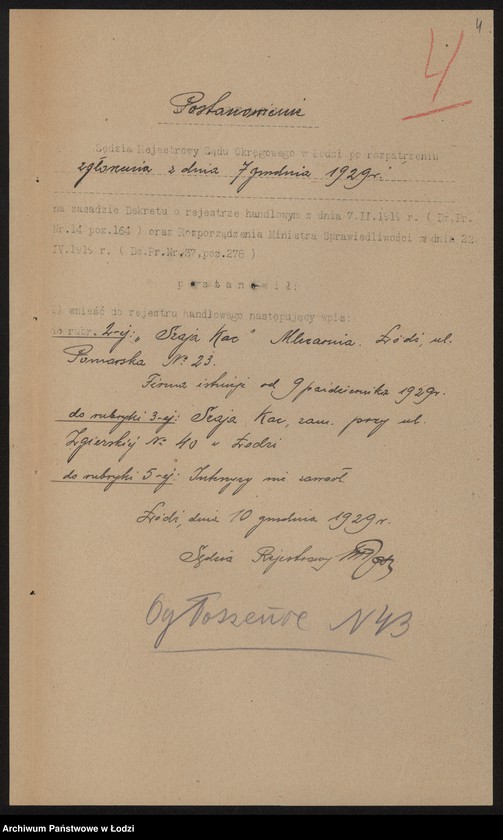 4
4
Postanowienie
Sędzia Rejestrowy Sądu Okręgowego w Łodzi po rozpatrzeniu
zgłoszenia z dnia 7 grudnia 1929 r.
na zasadzie Dekretu o rejestrze handlowym z dnia 7.II.1919 r. ( Dz.Pr.
Nr.14 poz.164 ) oraz Rozporządzenia Ministra Sprawiedliwości z dnia 22.
IV.1919 r. ( Dz.Pr.Nr.37,poz.278 )
p o s t a n o w i ł :
wnieść do rejestru handlowego następujący wpis:
do rubr. 2-ej: „Szaja Kac" Mleczarnia. Łódź, ul.
Pomorska № 23.
Firma istnieje od 9 października 1929 r.
do rubryki 3-ej: Szaja Kac, zam. przy ul.
Zgierskiej № 40 w Łodzi
do rubryki 5-ej: Intercyzy nie zawarł
Łódź, dnia 10 grudnia 1929 r.
Sędzia Rejestrowy
Ogłoszenie N 43
Archiwum Państwowe w Łodzi